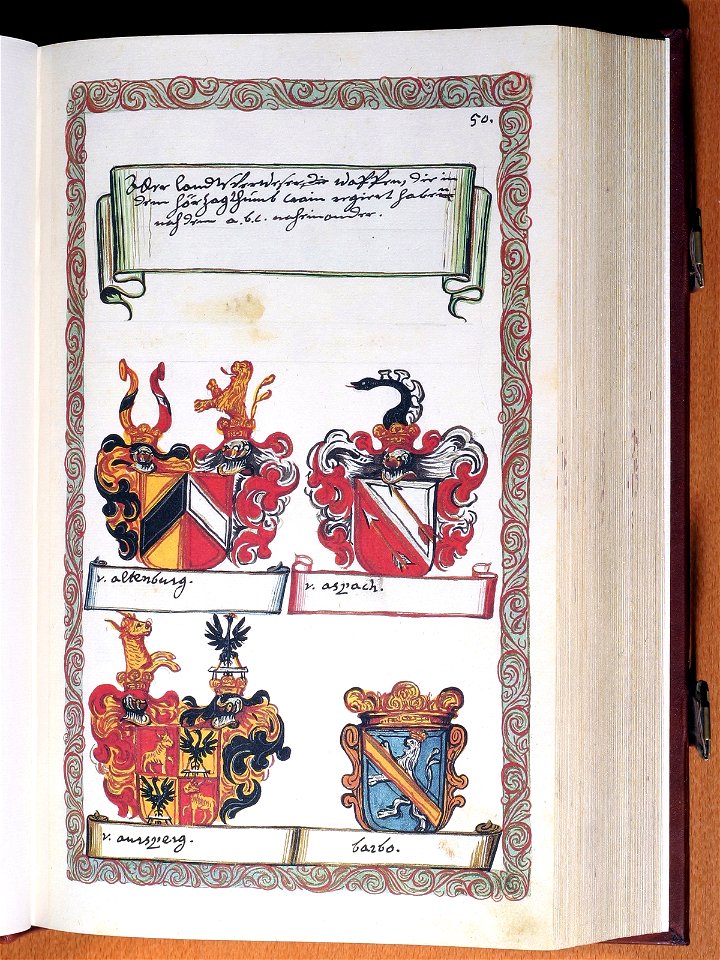 50.
Der Landtsverweser, die Waffen, die in
dem hörzogthumb Crain regiert haben
nach dem a. b. c. nacheinander.
v. altenburg.
v. aspach.
v. aursperg.
barbo.